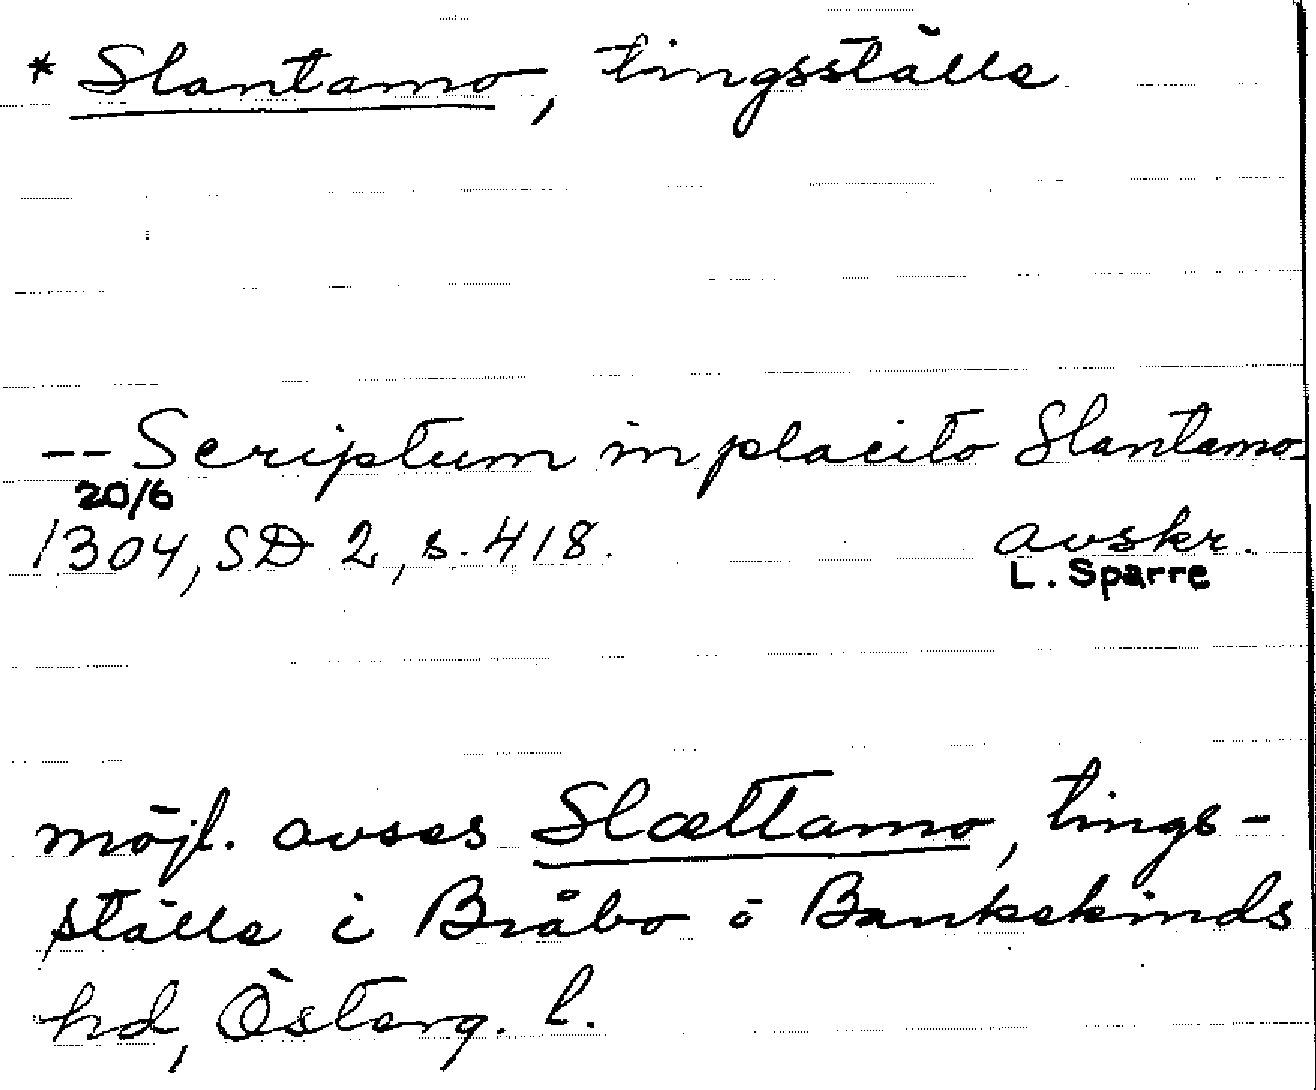 * Slantamo, tingsställe
-- Scriptum in placito Slantamo-
20/6
1304, SD 2, s. 418. avskr.
L. Sparre
möjl. avses Slættamo, tings-
ställe i Bråbo o Bankekinds
hd, Österg. l.